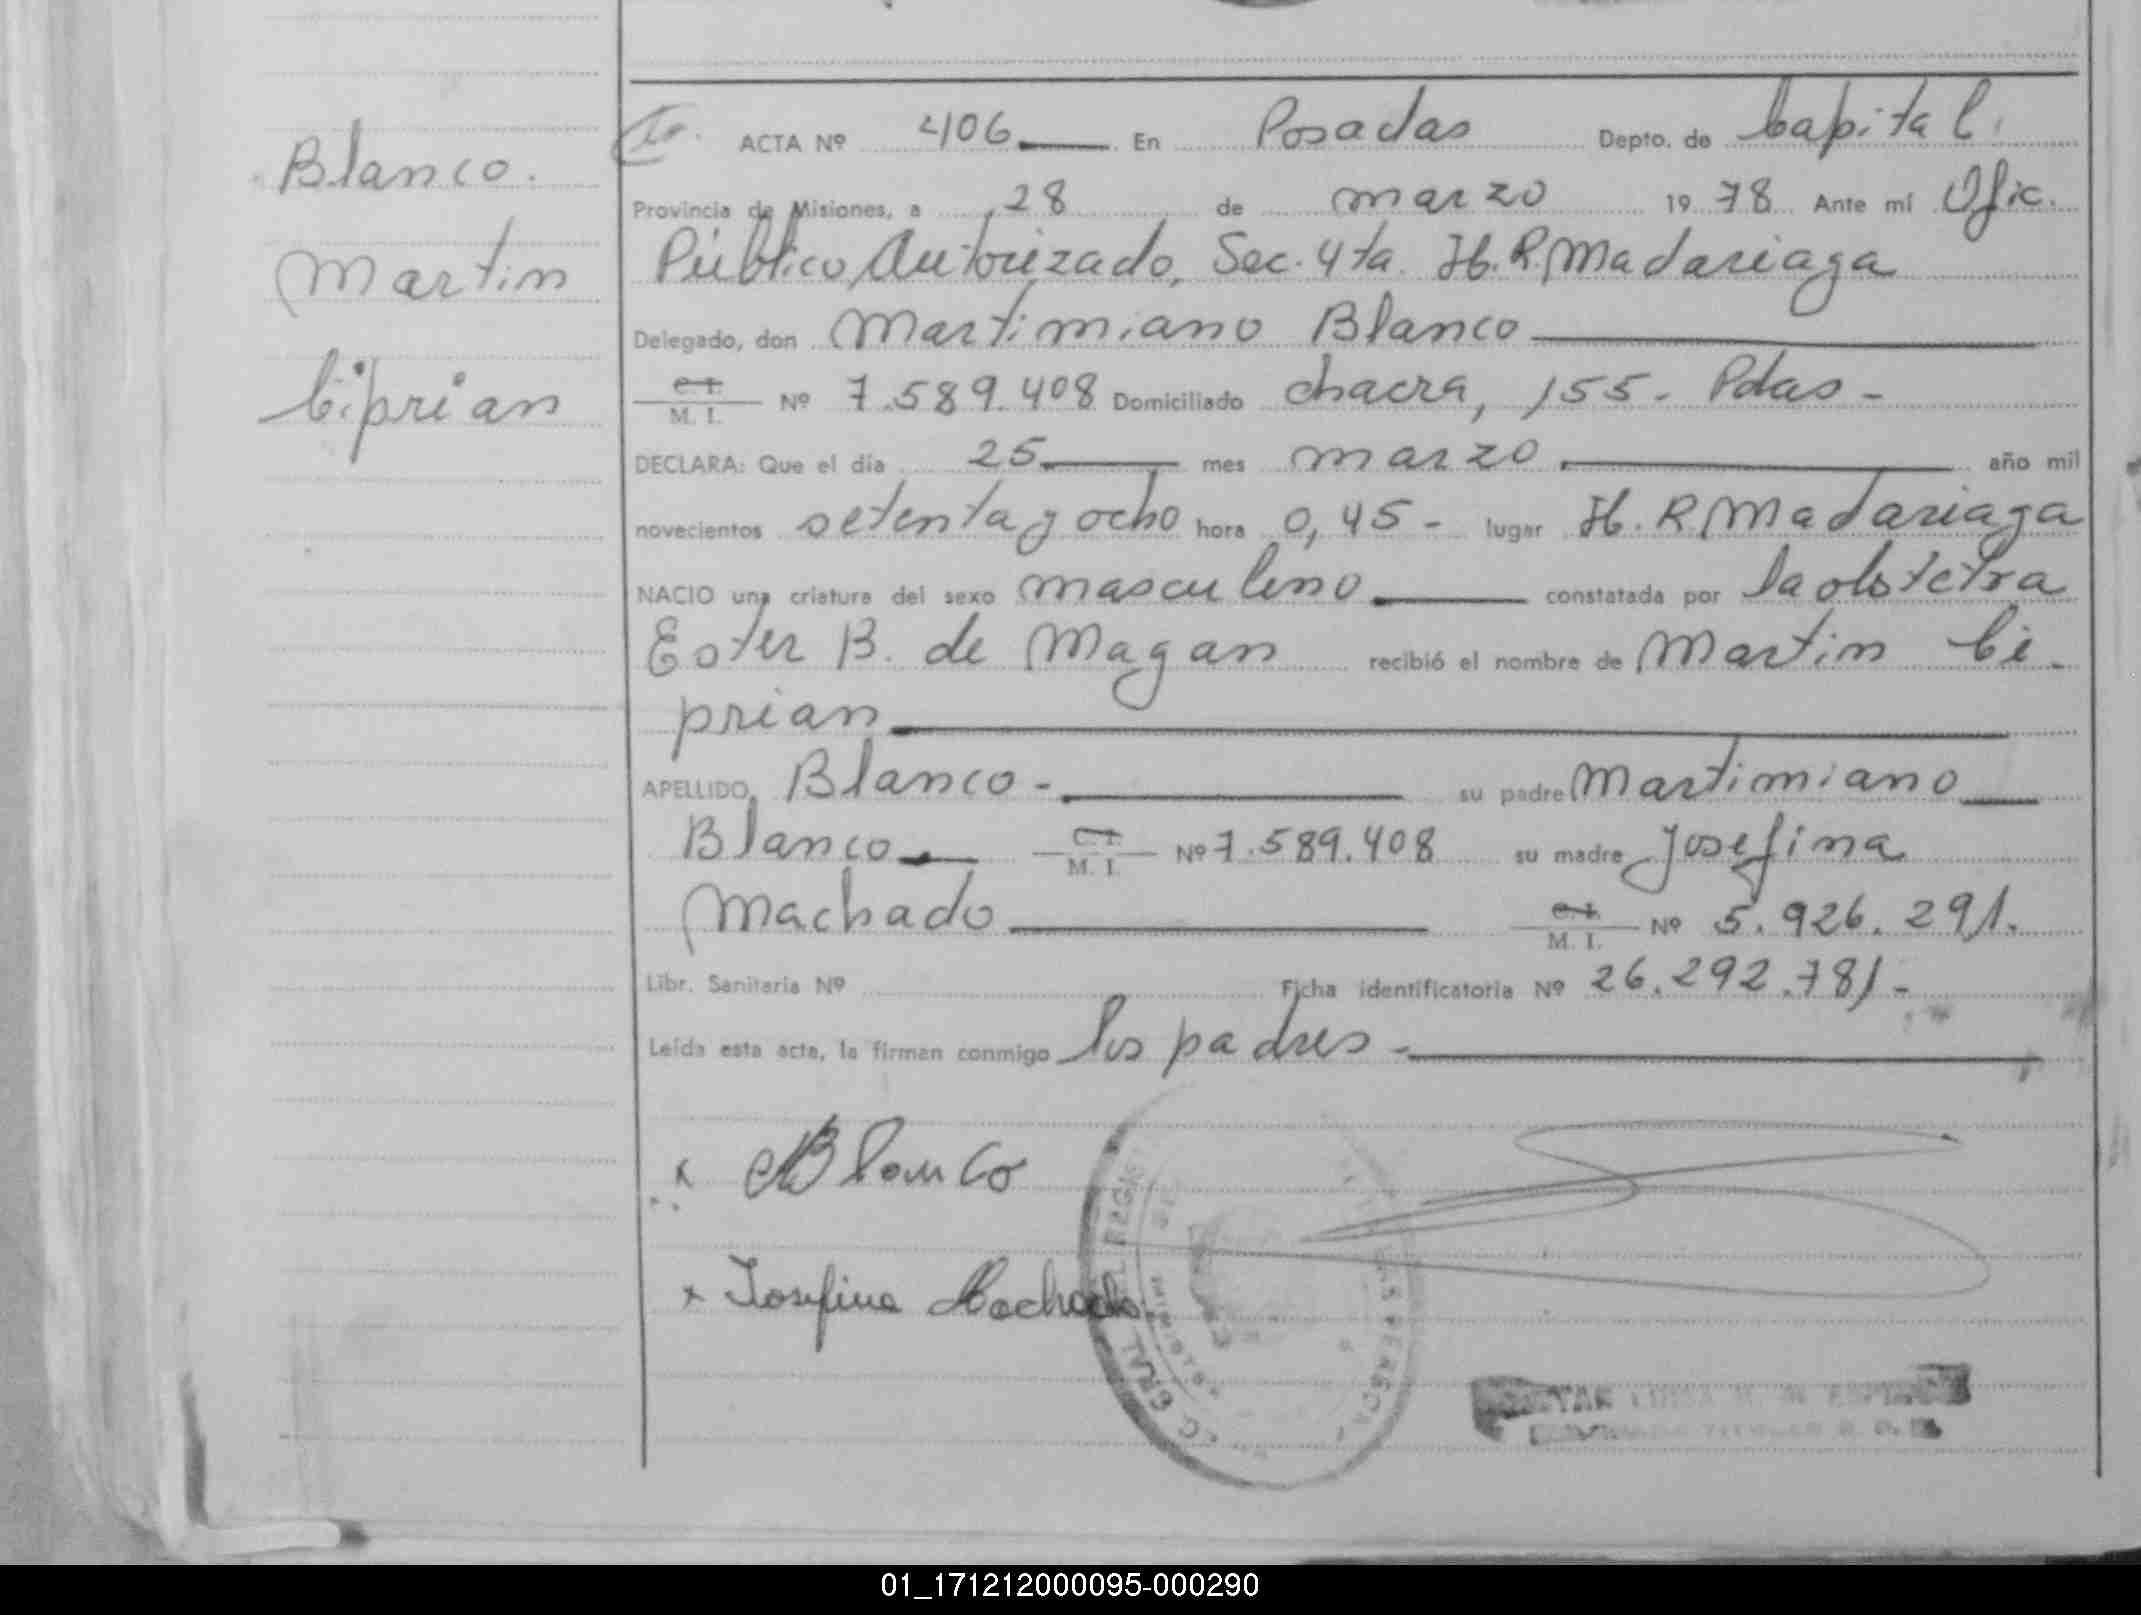 Blanco.
Martin
Ciprian
ACTA Nº 406 En Posadas Depto. de Capital.
Provincia de Misiones, a 28 de marzo 19 78 Ante mí Ofic.
Público Autorizado, Sec. 4ta. H. R. Madariaga
Delegado, don Martimiano Blanco
C.I. M. I. Nº 7.589.408 Domiciliado chacra, 155. Pdas -
DECLARA: Que el día 25 mes marzo año mil
novecientos setenta y ocho hora 0,45 - lugar H. R. Madariaga
NACIO una criatura del sexo masculino constatada por la obstetra
Ester B. de Magan recibió el nombre de Martin Ci-
prian
APELLIDO, Blanco - su padre Martimiano
Blanco C.I. M. I. Nº 7.589.408 su madre Josefina
Machado C.I. M. I. Nº 5.926.291.
Libr. Sanitaria Nº Ficha identificatoria Nº 26.292.781 -
Leída esta acta, la firman conmigo los padres -
x MBlanco
x Josefina Machado
01_171212000095-000290